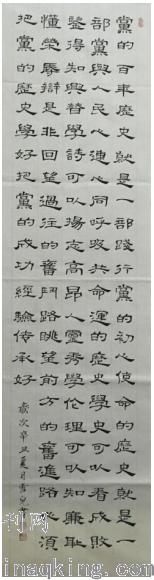 黨的百年歷史就是一部踐行黨的初心使命的歷史就是一
部黨與人民心連心同呼吸共命運的歷史學史可以看成敗
鑒得知興替學詩可以揚志高昂人靈秀學倫理可以知廉恥
懂榮辱辯是非回望過往的奮鬥路眺望前方的奮進路必須
把黨的歷史學好把黨的成功經驗傳承好
歲次辛丑夏月書
inaqking.com